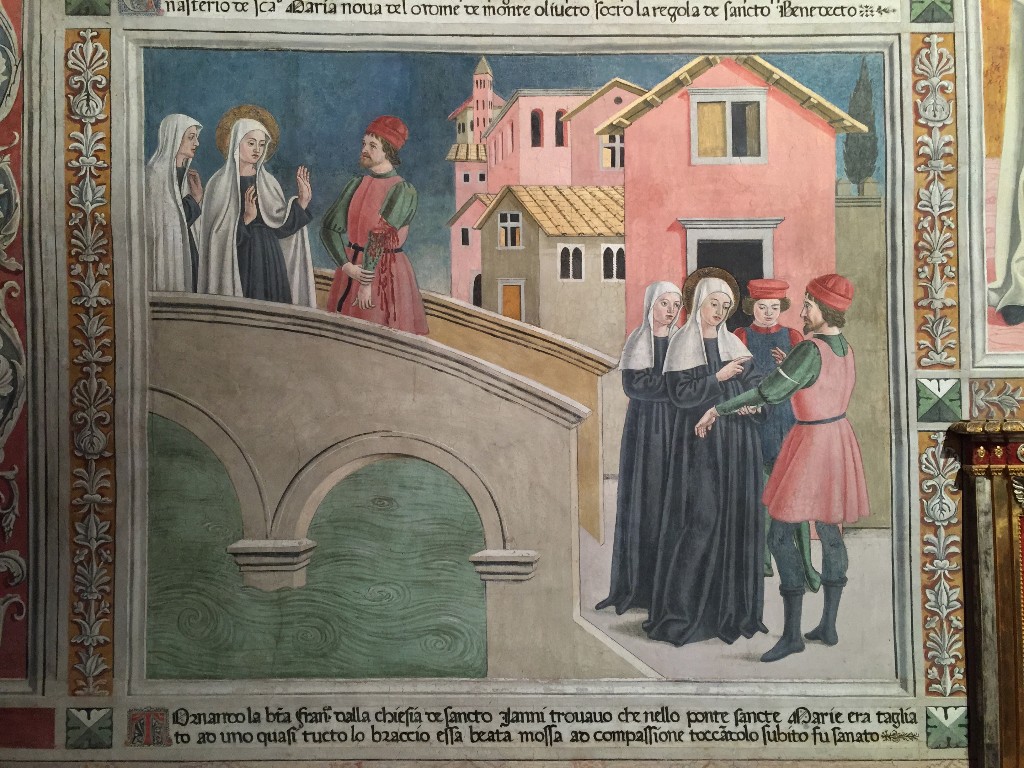 nasterio de Scā Maria nova del ordine de monte oliveto socto la regola de sancto Benedecto
TOrnanno la bt̄a Franc̄ dalla chiesia de sancto Ianni trovavo che nello ponte sancte Marie era taglia
to ad uno quasi tucto lo braccio essa beata mossa ad compassione toccãtolo subito fu sanato